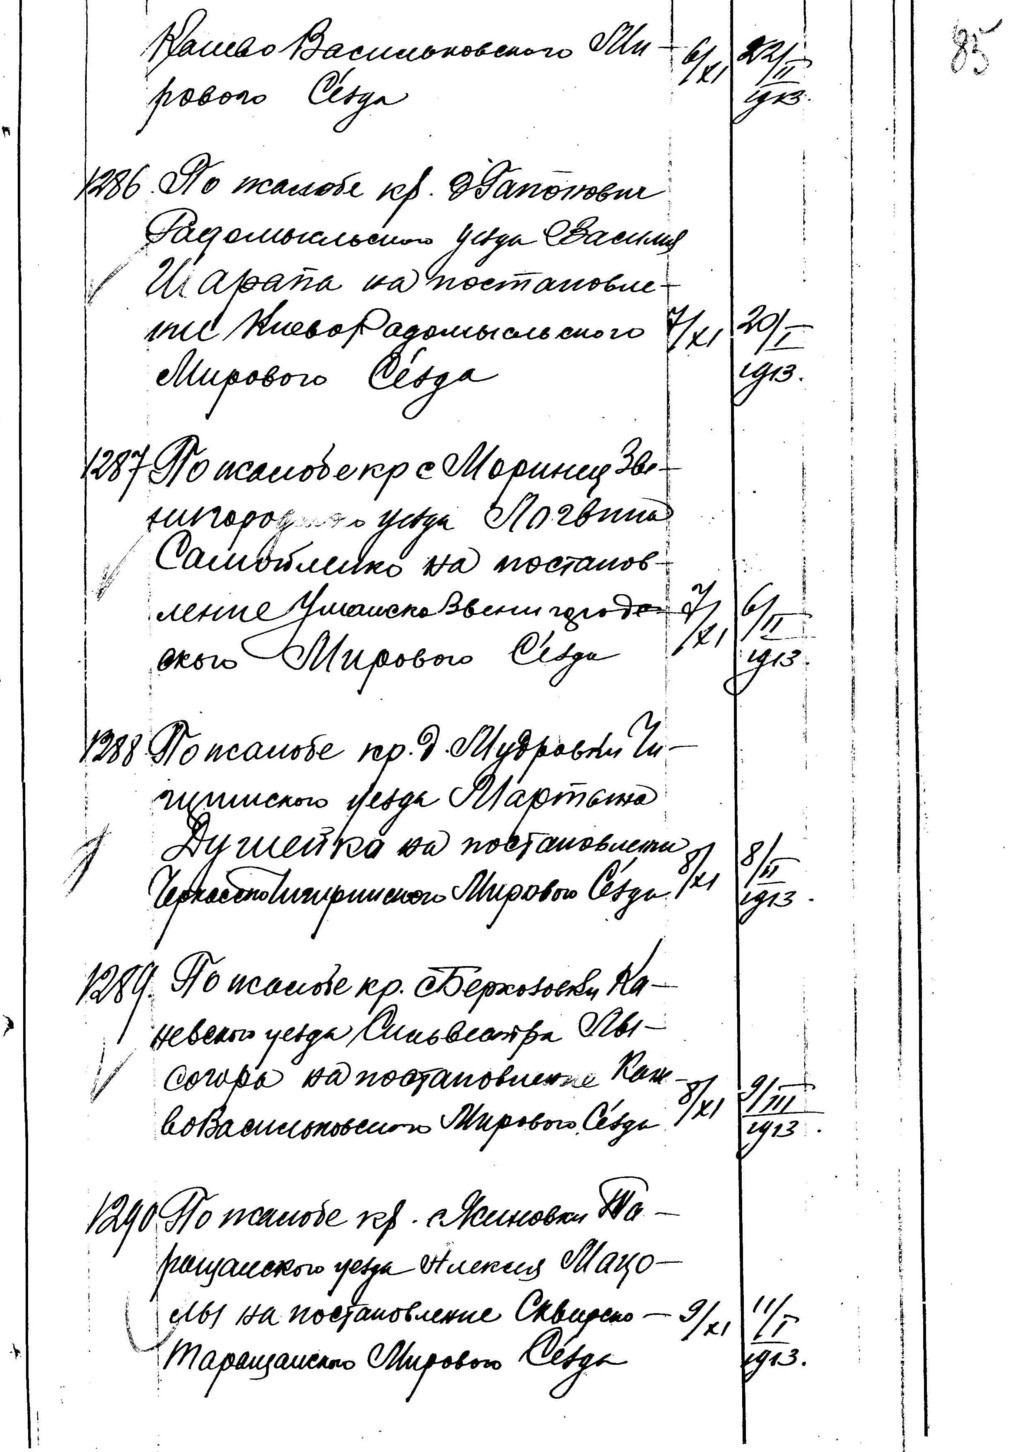 85
Канево Васильковского Ми- 6/XI 22/II
рового Съезда 1913.
1286. По жалобе кр. д Гапонович
Радомысльского уезда Василия
Шарапа на постановле-
ние Киево Радомысльского 7/XI 20/I
Мирового Съезда 1913.
1287 По жалобе кр с Моринец Зве-
нигородского уезда Логвина
Самойленко на постанов-
ление Уманско Звенигород- 7/XI 6/II
ского Мирового Съезда 1913.
1288 По жалобе кр. д. Мудровки Чи-
гиринского уезда Мартына
Душейка на постановление 8/XI 8/II
Черкасско Чигиринского Мирового Съезда 1913.
1289. По жалобе кр. с Берко­зовки Ка-
невского уезда Сильвестра Лы-
согора на постановление Кане-
во Васильковского Мирового Съезда 8/XI 9/III 1913.
1290 По жалобе кр. с Ясиновки Та-
ращанского уезда Алексея Мацо-
лы на постановление Сквирско- 9/XI 11/I
Таращанского Мирового Съезда 1913.